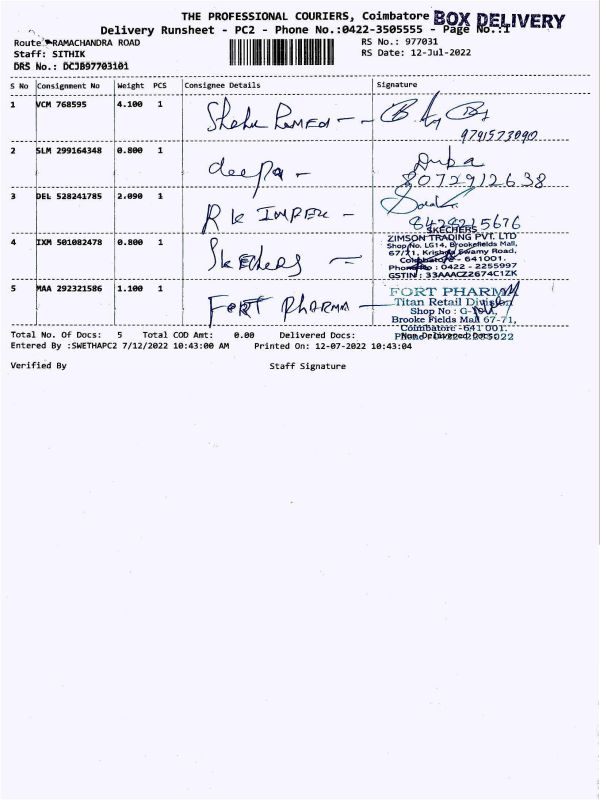 THE PROFESSIONAL COURIERS, Coimbatore BOX DELIVERY
Delivery Runsheet - PC2 - Phone No.:0422-3505555 - Page No.:1
Route: RAMACHANDRA ROAD RS No.: 977031
Staff: SITHIK RS Date: 12-Jul-2022
DRS No.: DCJB97703101
S No Consignment No Weight PCS Consignee Details Signature
1 VCM 768595 4.100 1
9791573090
2 SLM 299164348 0.800 1 deepa -
8072912638
3 DEL 528241785 2.090 1 RK IMPEX -
8428215676
4 IXM 501082478 0.800 1 Skechers -
SKECHERS
ZIMSON TRADING PVT. LTD
Shop No. LG14, Brookefields Mall,
67/71, Krishna Swamy Road,
Coimbatore - 641001.
Phone No : 0422 - 2255997
GSTIN : 33AAACZ2674C1ZK
5 MAA 292321586 1.100 1 FORT PHARMA -
FORT PHARMA
Titan Retail Division
Shop No :
Brooke Fields Mall 67-71,
Coimbatore -641 001.
Total No. Of Docs: 5 Total COD Amt: 0.00 Delivered Docs: Non Delivered Docs:
Entered By :SWETHAPC2 7/12/2022 10:43:00 AM Printed On: 12-07-2022 10:43:04
Verified By Staff Signature